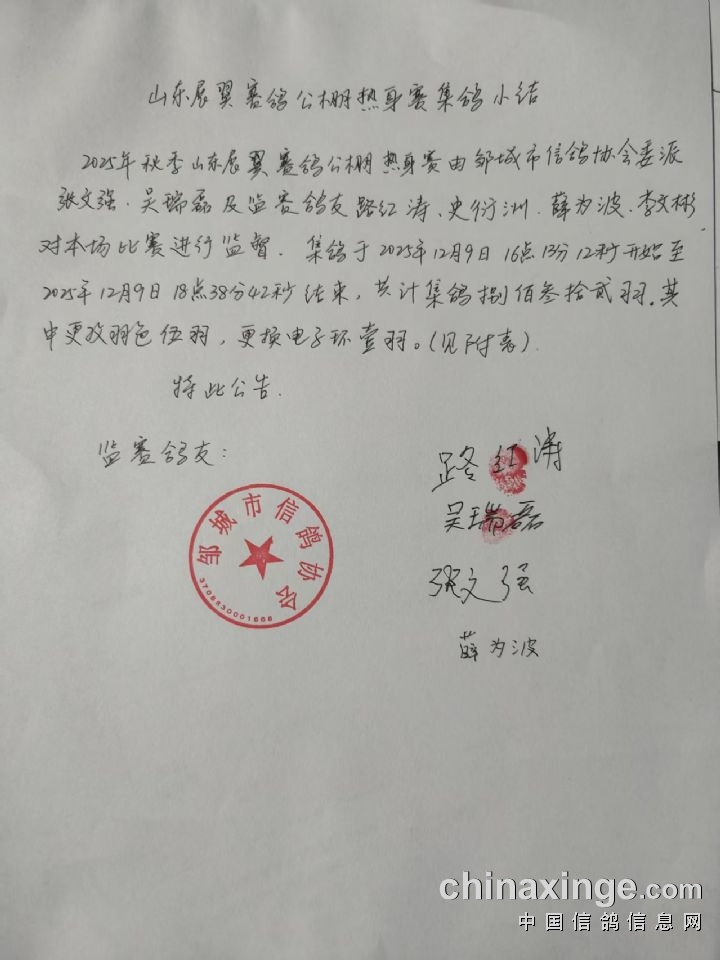 山东展翼赛鸽公棚热身赛集鸽小结
2025年秋季山东展翼赛鸽公棚热身赛由邹城市信鸽协会委派
张文强、吴瑞磊及监赛鸽友路红涛、史衍洲、薛为波、李文彬
对本场比赛进行监督。集鸽于2025年12月9日16点13分12秒开始至
2025年12月9日18点38分42秒结束，共计集鸽捌佰叁拾贰羽。其
中更改羽色伍羽，更换电子环壹羽。(见附表)
特此公告.
监赛鸽友：
路红涛
吴瑞磊
张文强
薛为波
邹城市信鸽协会
chinaxinge.com
中国信鸽信息网